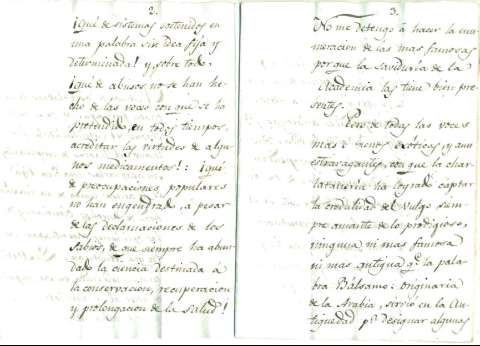 2.
¡Qué de sistemas sostenidos en
una palabra sin idea fija y
determinada! y, sobre todo,
¡qué de abusos no se han he-
cho de las voces con que se ha
pretendido, en todos tiempos,
acreditar las virtudes de algu-
nos medicamentos!: ¡qué
de preocupaciones populares
no han engendrado, a pesar
de las declamaciones de los
sabios, de que siempre ha abun-
dado la ciencia destinada a
la conservacion, recuperacion
y prolongacion de la salud!
3.
No me detengo á hacer la enu-
meracion de las mas famosas
porque la sabiduría de la
Academia las tiene bien pre-
sentes.
Pero de todas las voces
más ó menos exóticas, y aun
extravagantes, con que la char-
latanería ha logrado captar
la credulidad del Vulgo siem-
pre amante de lo prodigioso,
ninguna ni mas famosa
ni mas antigua q.e la pala-
bra Bálsamo: originaria
de la Arabia, sirvió en la An-
tigüedad p.a designar algunas